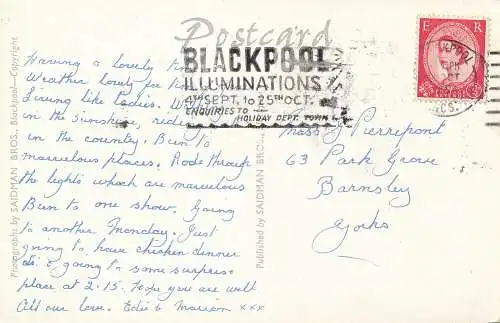 Postcard
BLACKPOOL
ILLUMINATIONS
4TH SEPT. TO 25TH OCT.
ENQUIRIES TO
HOLIDAY DEPT. TOWN
E R
Having a lovely
Weather lovely for
Living like Ladies.
in the sunshine,
in the country. Been to
marvelous places. Rode through
the lights which are marvelous
Been to one show. Going
to another Monday. Just
going to have chicken dinner
& going to some surprise
place at 2.15. Hope you are well
All our love. Edie & Marion xxx
Pierrepont
63 Park Grove
Barnsley
Yorks
Photographs by SAIDMAN BROS., Blackpool—Copyright
Published by SAIDMAN BROS.